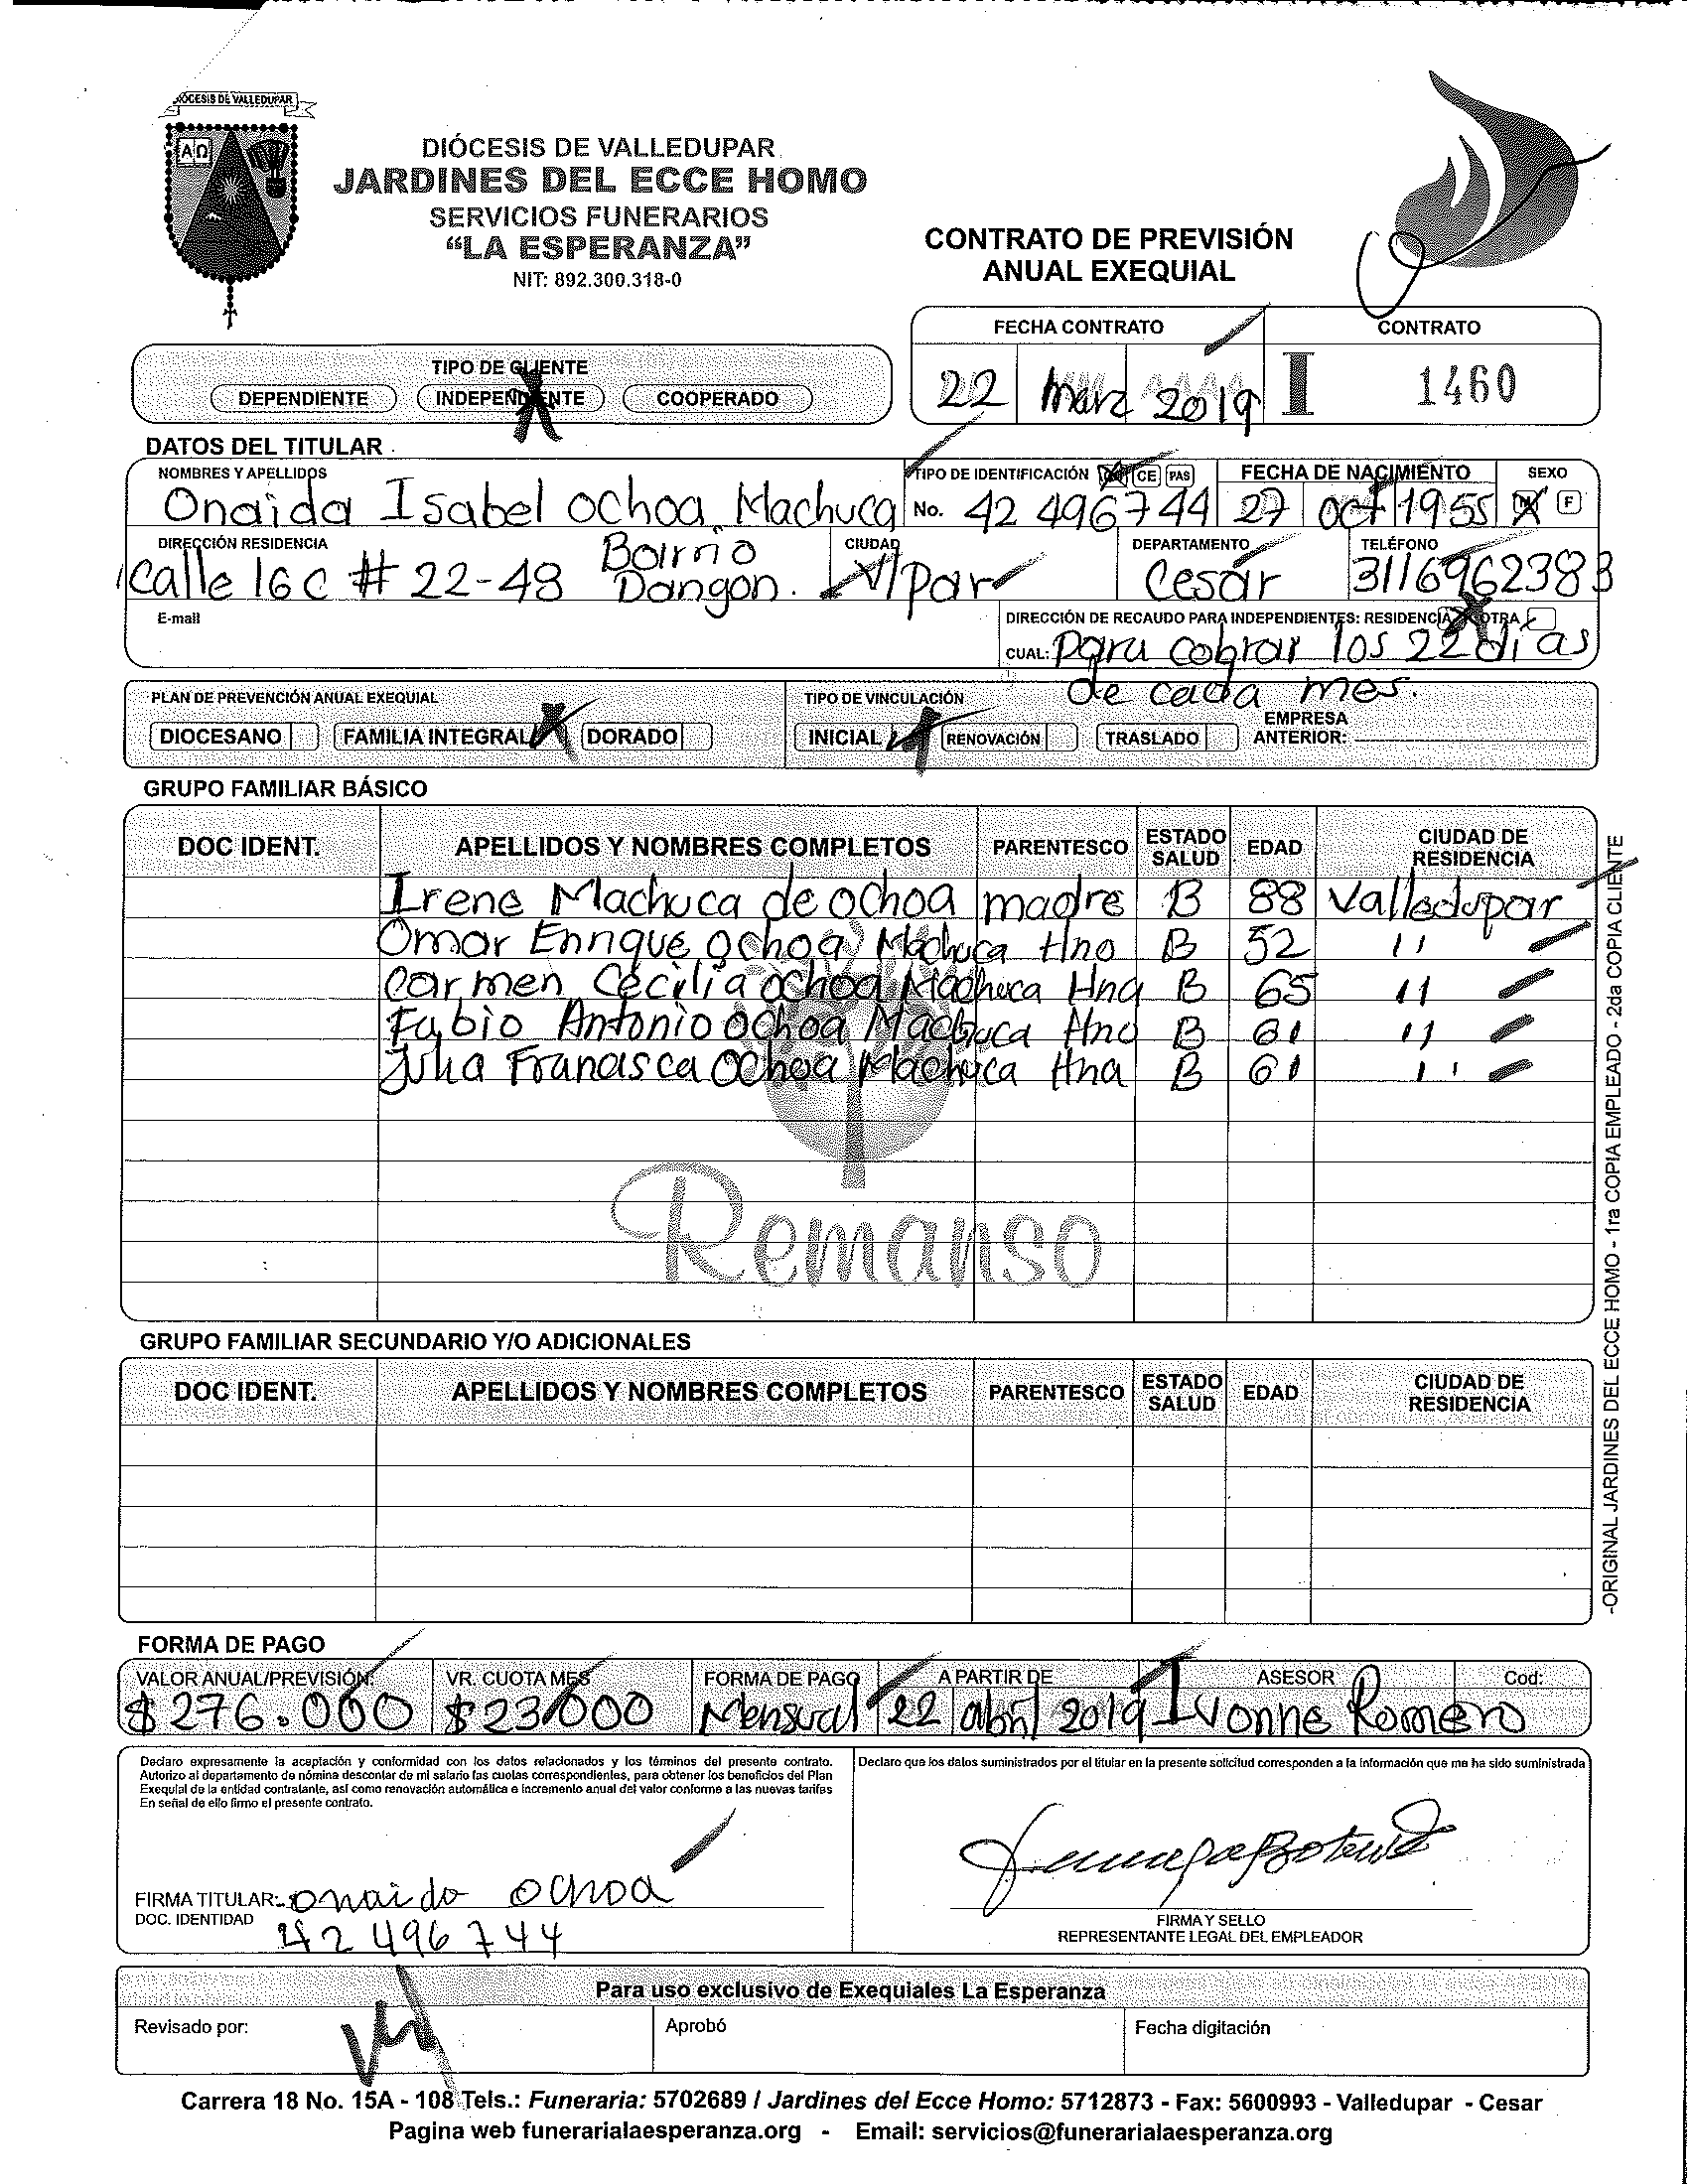 DIÓCESIS DE VALLEDUPAR
ΑΩ
DIÓCESIS DE VALLEDUPAR
JARDINES DEL ECCE HOMO
SERVICIOS FUNERARIOS
“LA ESPERANZA”
NIT: 892.300.318-0
CONTRATO DE PREVISIÓN
ANUAL EXEQUIAL
FECHA CONTRATO CONTRATO
22 Marz 2019 I 1460
TIPO DE CLIENTE
DEPENDIENTE INDEPENDIENTE X COOPERADO
DATOS DEL TITULAR
NOMBRES Y APELLIDOS TIPO DE IDENTIFICACIÓN CE PAS FECHA DE NACIMIENTO SEXO
Onaida Isabel Ochoa Machuca No. 42 496744 27 oct 1955 M F
DIRECCIÓN RESIDENCIA CIUDAD DEPARTAMENTO TELÉFONO
Calle 16 C # 22-48 Barrio Dangon. V/par Cesar 3116962383
E-mail DIRECCIÓN DE RECAUDO PARA INDEPENDIENTES: RESIDENCIA X OTRA
CUAL: para cobrar los 22 dias
de cada mes.
PLAN DE PREVENCIÓN ANUAL EXEQUIAL TIPO DE VINCULACIÓN
DIOCESANO FAMILIA INTEGRAL X DORADO INICIAL X RENOVACIÓN TRASLADO EMPRESA ANTERIOR:
GRUPO FAMILIAR BÁSICO
DOC IDENT. APELLIDOS Y NOMBRES COMPLETOS PARENTESCO ESTADO SALUD EDAD CIUDAD DE RESIDENCIA
Irene Machuca de Ochoa madre B 88 Valledupar
Omar Enrique Ochoa Machuca Hno B 52 ''
Carmen Cecilia Ochoa Machuca Hna B 65 ''
Fabio Antonio Ochoa Machuca Hno B 61 ''
Julia Francisca Ochoa Machuca Hna B 61 ''
Remanso
GRUPO FAMILIAR SECUNDARIO Y/O ADICIONALES
DOC IDENT. APELLIDOS Y NOMBRES COMPLETOS PARENTESCO ESTADO SALUD EDAD CIUDAD DE RESIDENCIA
-ORIGINAL JARDINES DEL ECCE HOMO - 1ra COPIA EMPLEADO - 2da COPIA CLIENTE
FORMA DE PAGO
VALOR ANUAL/PREVISIÓN: VR. CUOTA MES FORMA DE PAGO A PARTIR DE ASESOR Cod:
$ 276.000 $ 23.000 Mensual 22 abril 2019 Ivonne Romero
Declaro expresamente la aceptación y conformidad con los datos relacionados y los términos del presente contrato.
Autorizo al departamento de nómina descontar de mi salario las cuotas correspondientes, para obtener los beneficios del Plan
Exequial de la entidad contratante, así como renovación automática e incremento anual del valor conforme a las nuevas tarifas
En señal de ello firmo el presente contrato.
Declaro que los datos suministrados por el titular en la presente solicitud corresponden a la información que me ha sido suministrada
FIRMA TITULAR: onaida ochoa
DOC. IDENTIDAD 42 496 744
FIRMA Y SELLO
REPRESENTANTE LEGAL DEL EMPLEADOR
Para uso exclusivo de Exequiales La Esperanza
Revisado por: Aprobó Fecha digitación
Carrera 18 No. 15A - 108 Tels.: Funeraria: 5702689 / Jardines del Ecce Homo: 5712873 - Fax: 5600993 - Valledupar - Cesar
Pagina web funerarialaesperanza.org - Email: servicios@funerarialaesperanza.org